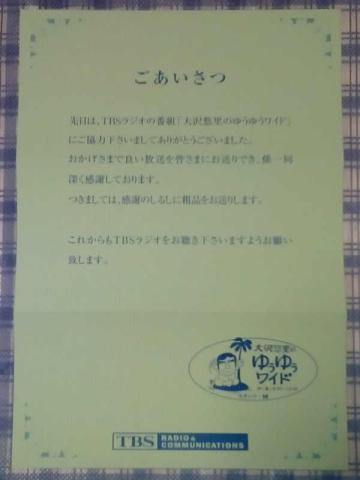 ごあいさつ
先日は、TBSラジオの番組「大沢悠里のゆうゆうワイド」
にご協力下さいましてありがとうございました。
おかげさまで良い放送を皆さまにお送りでき、係一同
深く感謝しております。
つきましては、感謝のしるしに粗品をお送りします。
これからもTBSラジオをお聴き下さいますようお願い
致します。
大沢悠里の
ゆうゆう
ワイド
TBS RADIO & COMMUNICATIONS